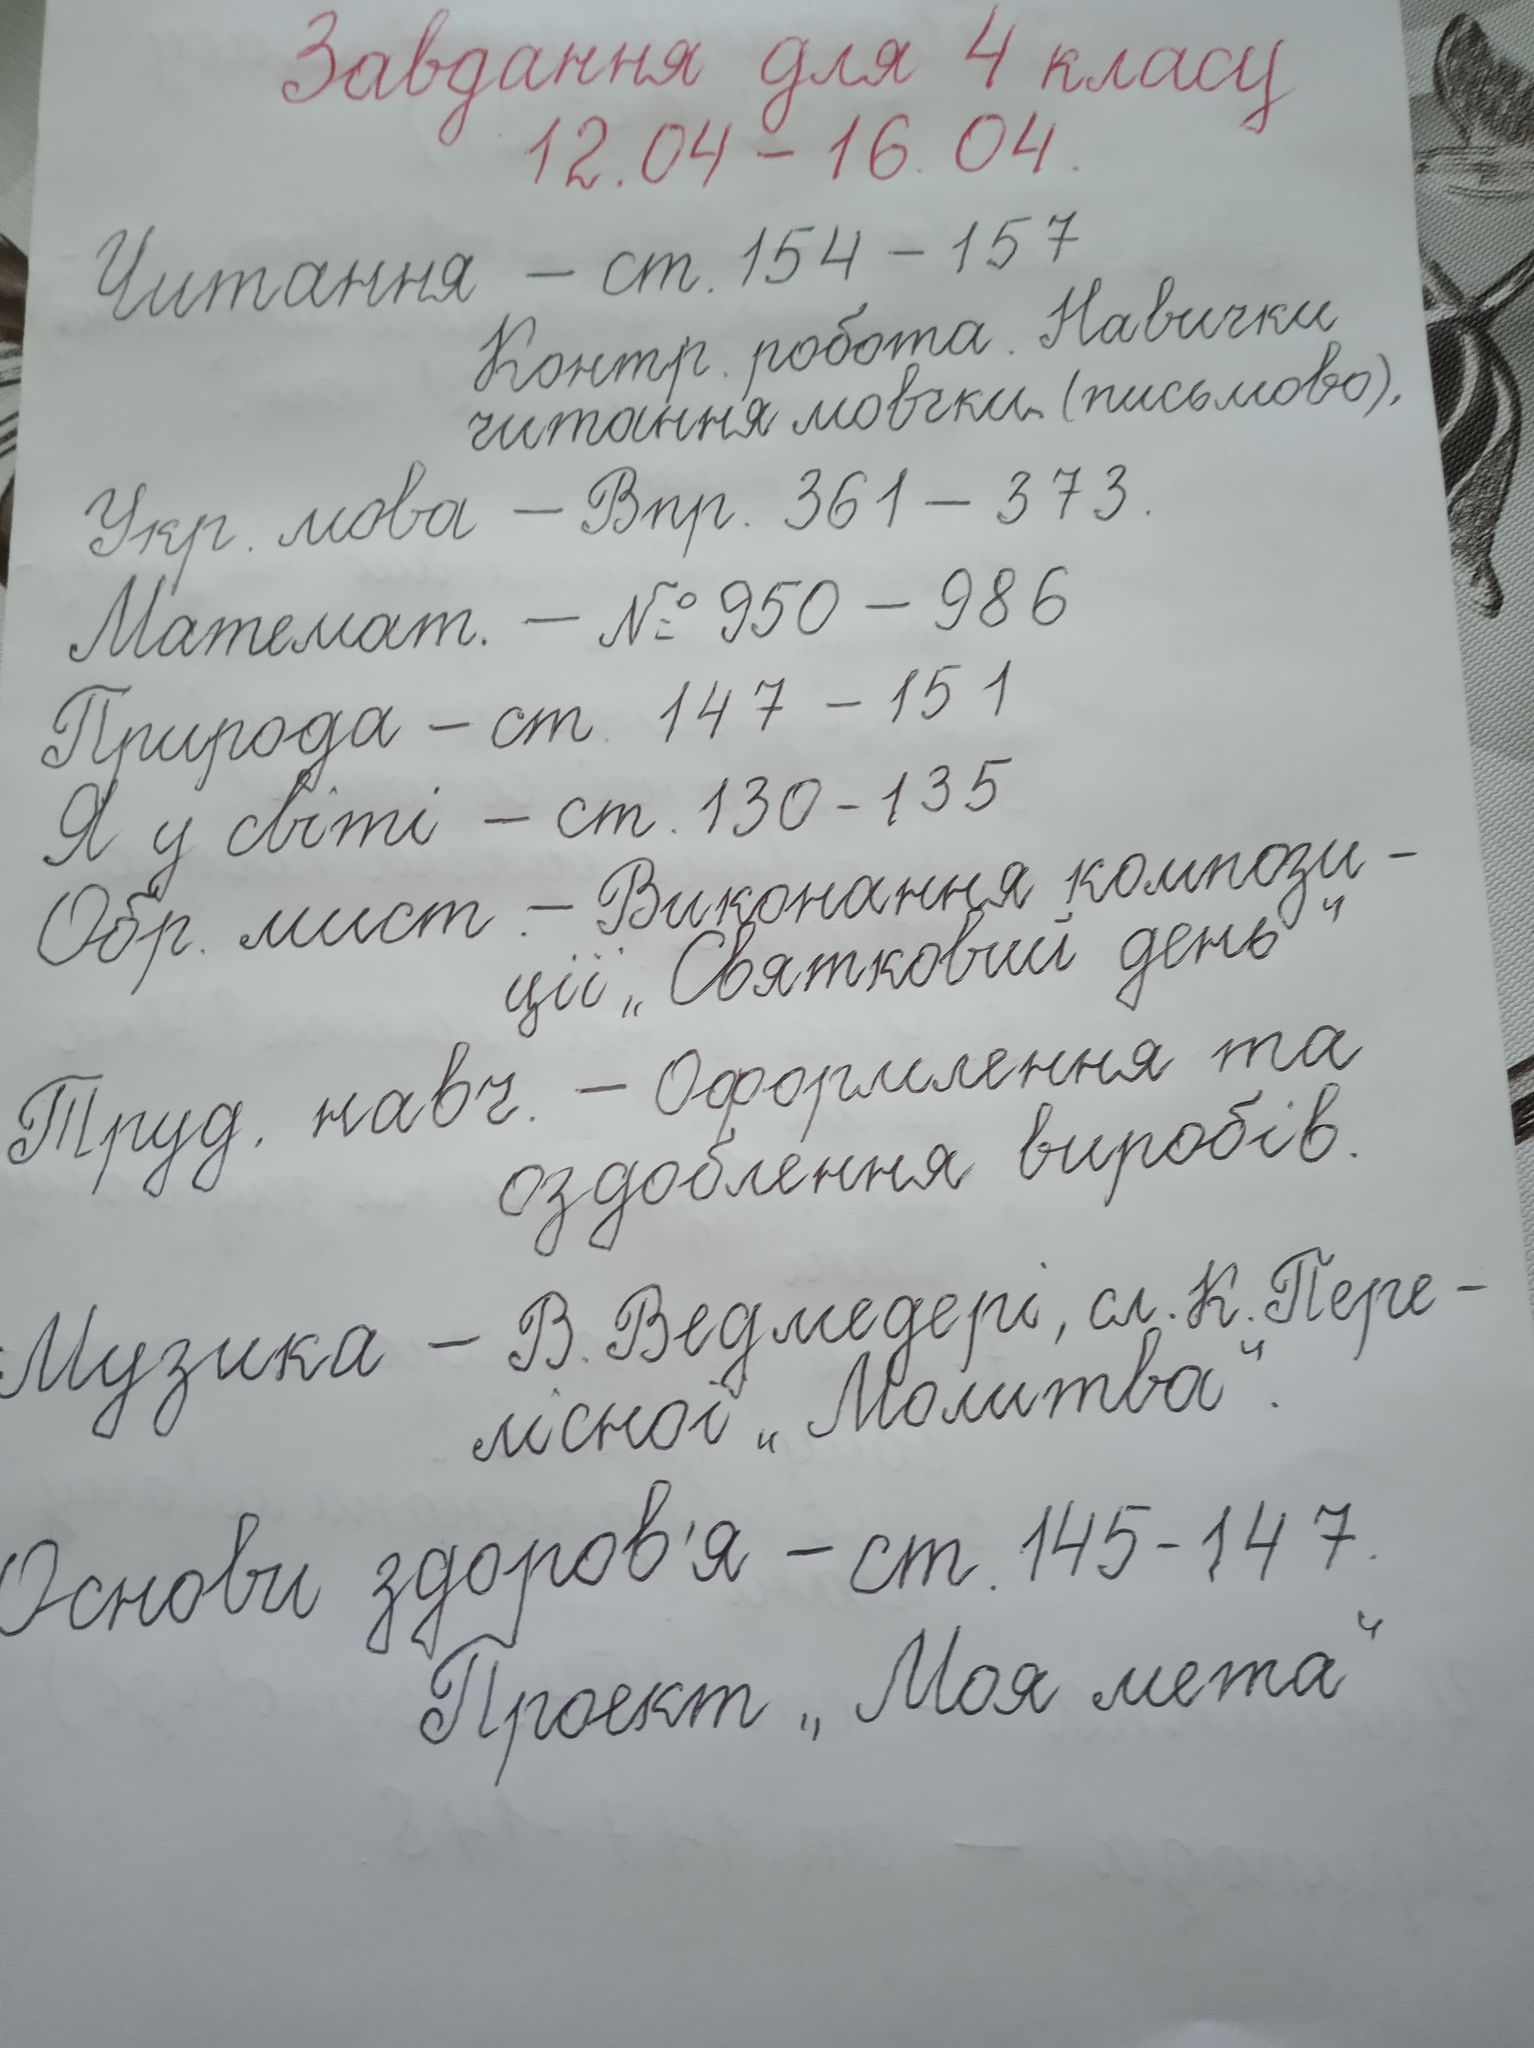 Завдання для 4 класу
12.04 – 16.04.
Читання – ст. 154 – 157
Контр. робота. Навички
читання мовчки (письмово).
Укр. мова – Впр. 361 – 373.
Математ. – № 950 – 986
Природа – ст. 147 – 151
Я у світі – ст. 130 – 135
Обр. мист. – Виконання компози-
ції „Святковий день“
Труд. навч. – Оформлення та
оздоблення виробів.
Музика – В. Ведмедері, сл. К. Пере-
лісної „Молитва“.
Основи здоров'я – ст. 145 – 147.
Проект „Моя мета“